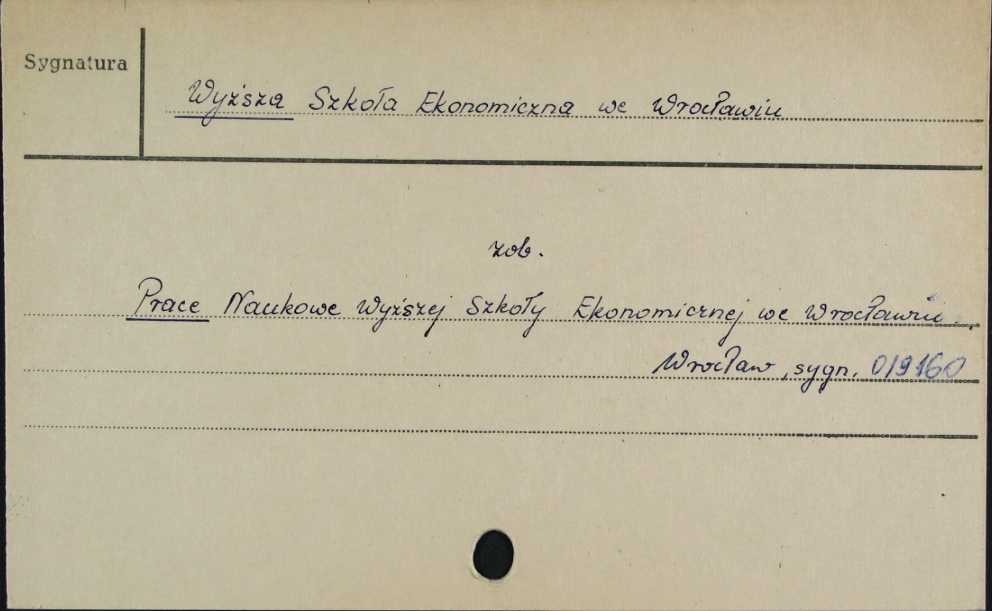 Sygnatura
Wyższa Szkoła Ekonomiczna we Wrocławiu
zob.
Prace Naukowe Wyższej Szkoły Ekonomicznej we Wrocławiu
Wrocław, sygn. 019160